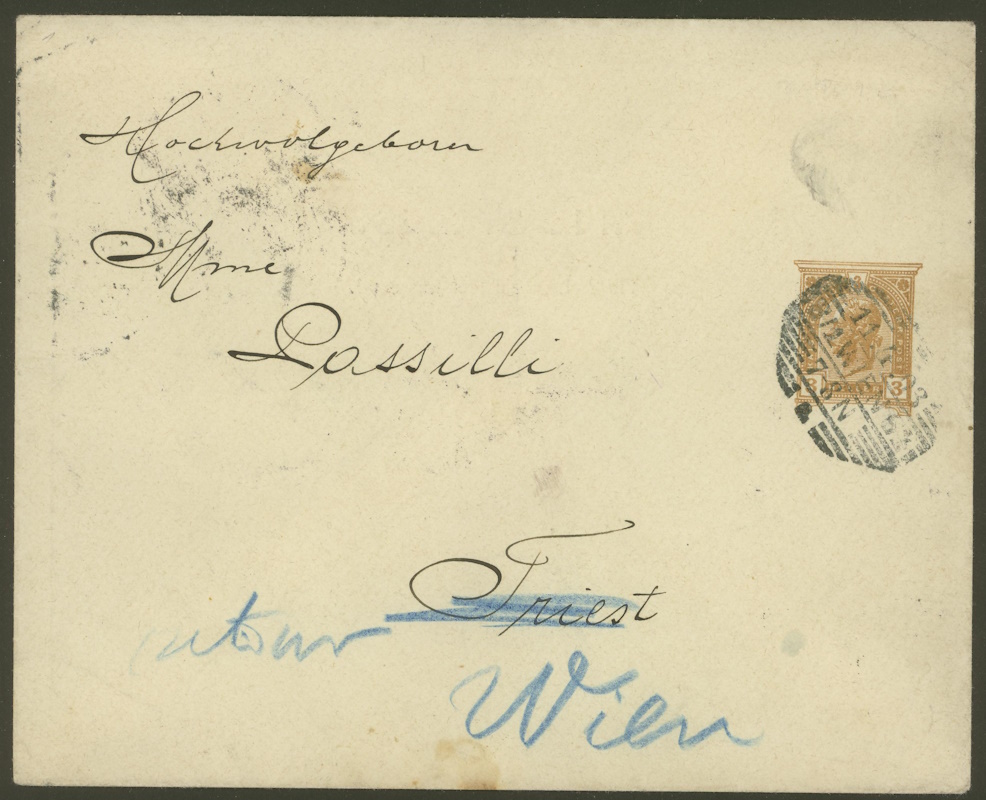 Hochwolgeborn
Mme
Passilli
Triest
retour
Wien
3